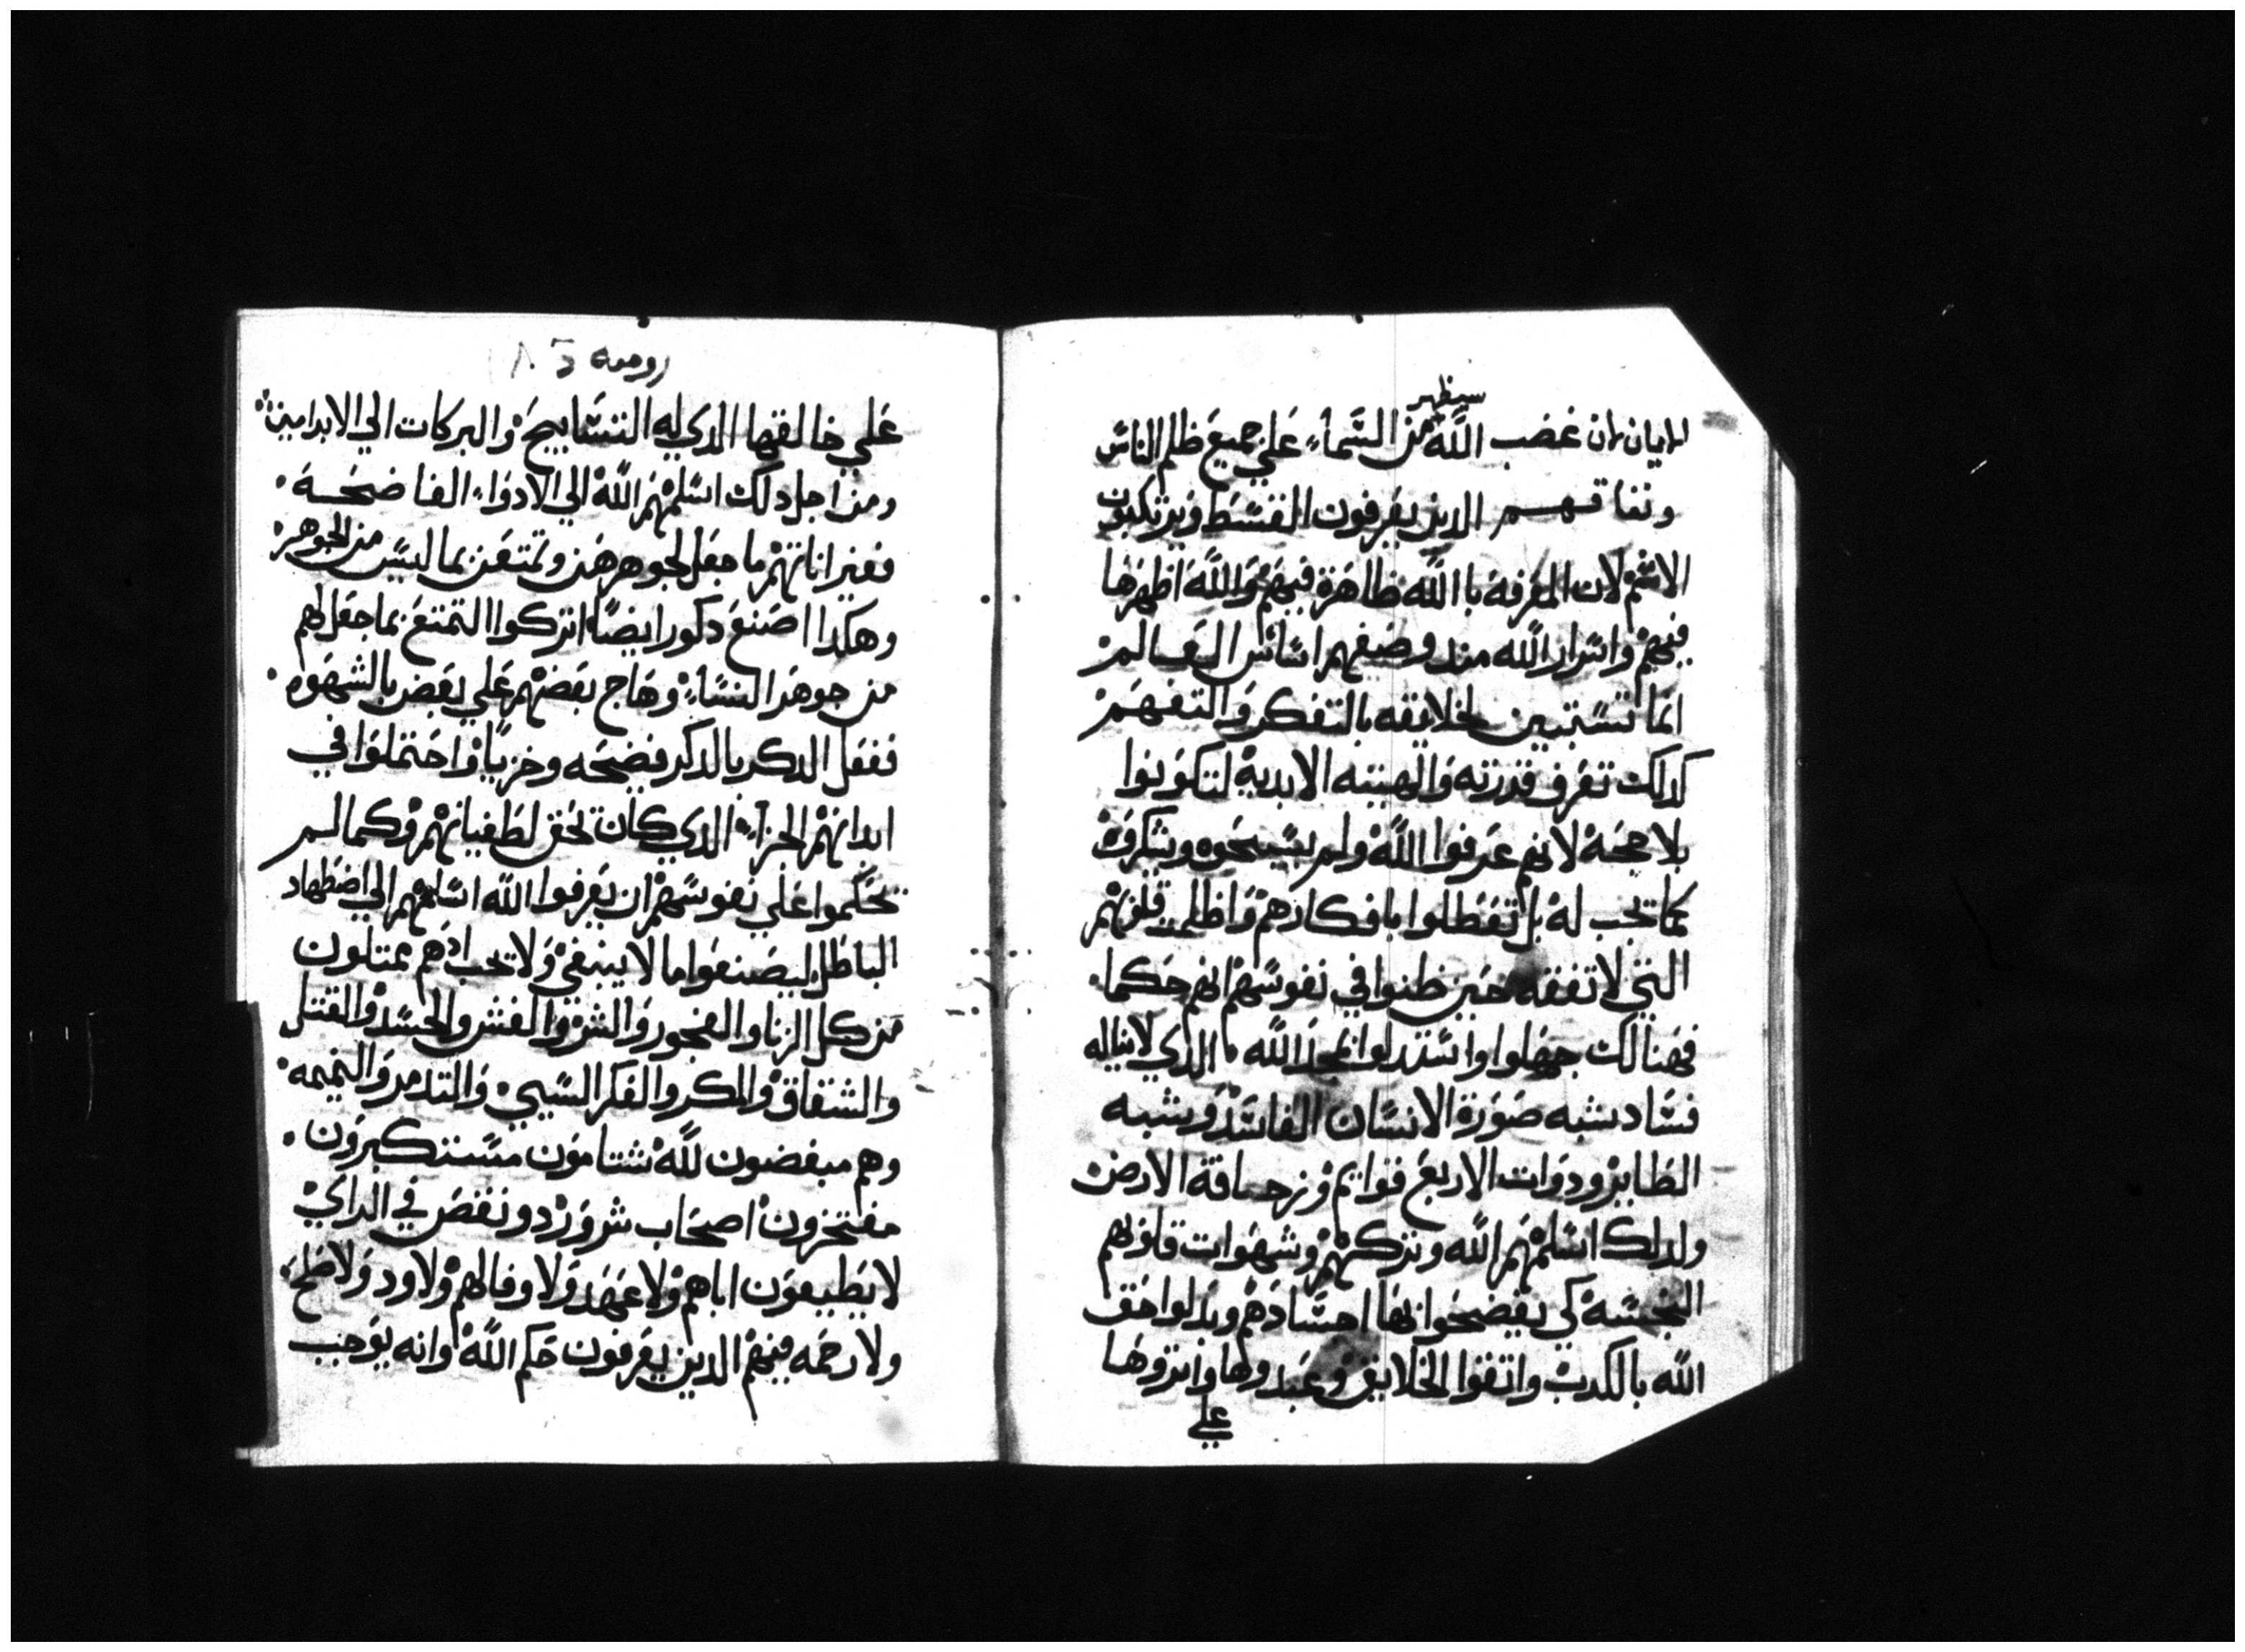 سيظهر
الايمان لان غضب الله من السَّماء علي جميع ظلم الناس
ونفاقهم الدين يعرفون القسط ويرتكبون
الاثم لان المعرفة باالله ظاهرة فيهم والله اظهرها
فيهم واسرار الله مند وضعهم اساس العالم
انما تستبين لخلايقه بالتفكر والتفهم
كدلك تعرف قدرته والهيته الابدية لتكونوا
بلا حجة لانهم عرفوا الله ولم يسبحوه ويشكروه
كما تجب له بل تعطلوا بافكارهم واظلمت قلوبهم
التي لا تفقه حين ظنوا في نفوسهم انهم حكما
فهنالك جهلوا واستبدلوا بمجد الله الدي لا يناله
فساد بشبه صورة الانسان الفاسد وبشبه
الطاير ودوات الاربع قوايم وزحافة الارض
ولدلك اسلمهم الله وتركهم وشهوات قلوبهم
النجسة كي يفضحوا بها اجسادهم وبدلوا حق
الله بالكدب واتقوا الخلايق وعبدوها واتروها
علي
روميه
علي خالقها الدي له التسابيح والبركات الي الابد امين
ومن اجل دلك اسلمهم الله الي الادواء الفاضحة
فغير اناتهم ما جعل لجوهرهن وتمتعن بما ليس من الجوهر
وهكدا اصنع دكور ايضا اتركوا التمتع بما جعل لهم
من جوهر النساء وهاج بعضهم علي بعض بالشهوه
ففعل الدكر بالدكر فضيحه وخزيا واحتملوا في
ابدانهم الجزاء الدي كان يحق لطغيانهم وكما لم
يحكموا علي نفوسهم ان يعرفوا الله اسلمهم الي اضطهاد
الباطل ليصنعوا ما لا ينبغي ولا يجب اد هم ممتلون
من كل الزنا والفجور والشر والغش والحسد والقتل
والشقاق والمكر والفكر السيي والتدمر والنميمه
وهم مبغضون لله شتامون مستكبرون
مفتخرون اصحاب شرور دو نقص في الراي
لا يطيعون اباهم ولا عهد ولا وفا لهم ولا ود ولا صلح
ولا رحمه فيهم الدين يعرفون حكم الله وانه يوجب